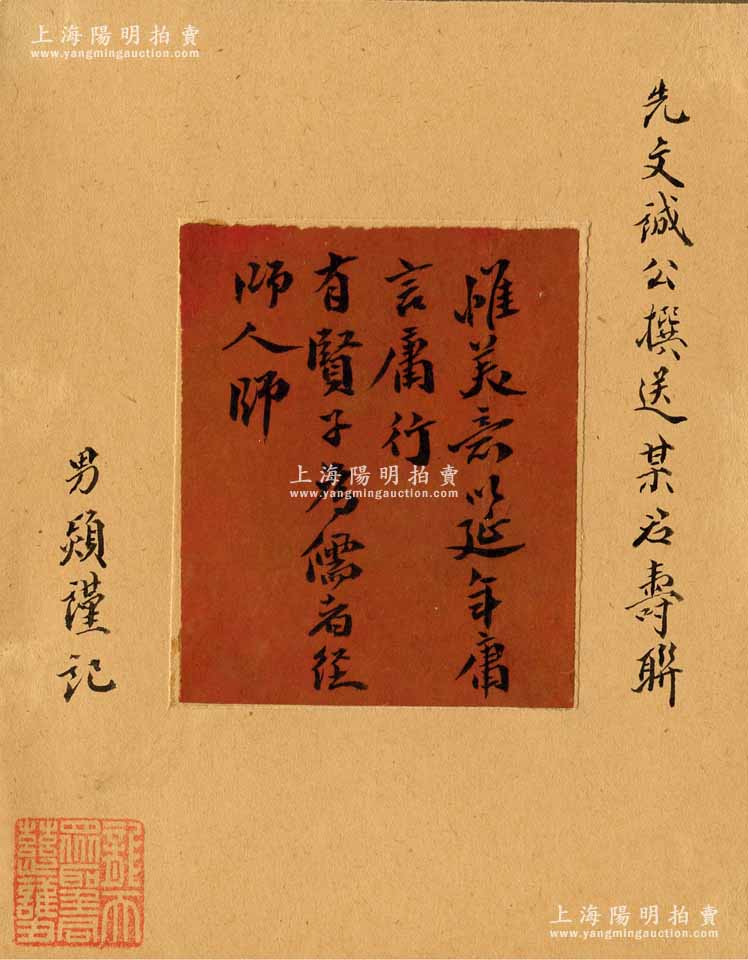 上海陽明拍賣
www.yangmingauction.com
先文誠公撰送某君壽聯
惟美意以延年庸
言庸行
有賢子為儒者經
師人師
男熲謹記
上海陽明拍賣
www.yangmingauction.com
上海陽明拍賣
www.yangmingauction.com